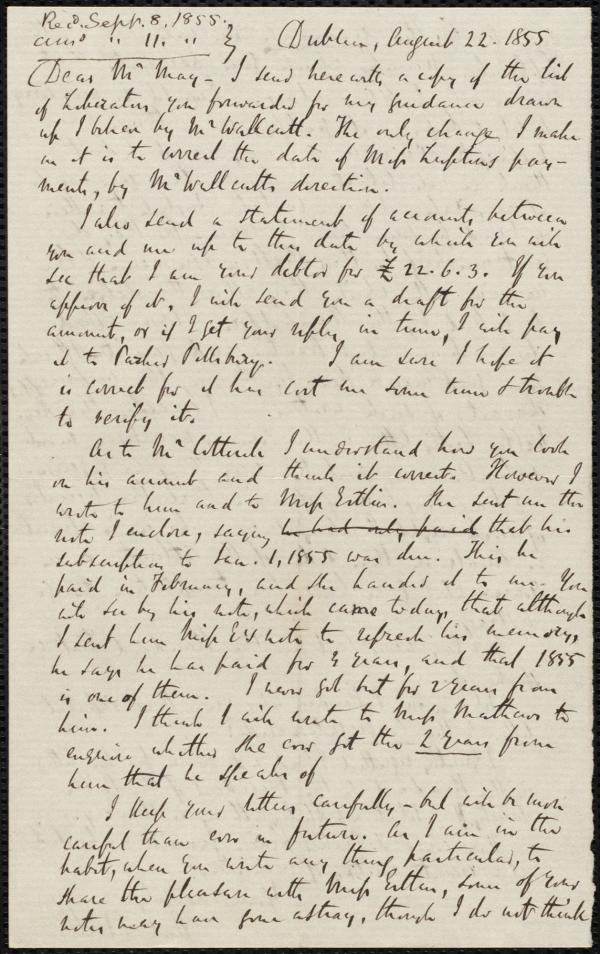 Recd. Sept. 8, 1855.
ansd " 11. "
Dublin, August 22. 1855
Dear Mr May - I send herewith a copy of the list
of Liberators you forwarded for my guidance drawn
up I believe by Mr Wallcutt. The only change I make
in it is to correct the date of Miss Lupton's pay-
ments, by Mr Wallcutt's direction.
I also send a statement of accounts between
you and me up to this date by which you will
see that I am your debtor for £22.6.3. If you
approve of it, I will send you a draft for the
amount, or if I get your reply in time, I will pay
it to Parker Pillsbury. I am sure I hope it
is correct for it has cost me some time & trouble
to verify it.
As to Mr I understand how you look
on his account and think it correct. However I
wrote to him and to Miss Estlin. She sent me the
note I enclose, saying he had only paid that his
subscription to Jan. 1, 1855 was due. This he
paid in February, and she handed it to me. You
will see by his note, which came today, that although
I sent him Miss E's note to refresh his memory,
he says he has paid for years, and that 1855
is one of them. I never got but for 2 years from
him. I think I will write to Miss Mathews to
enquire whether she ever got the 2 years from
him that he speaks of
I keep your letters carefully - but will be more
careful than ever in future. As I am in the
habit, when you write any thing particular, to
share the pleasure with Miss Estlin, some of your
notes may have gone astray, though I do not think